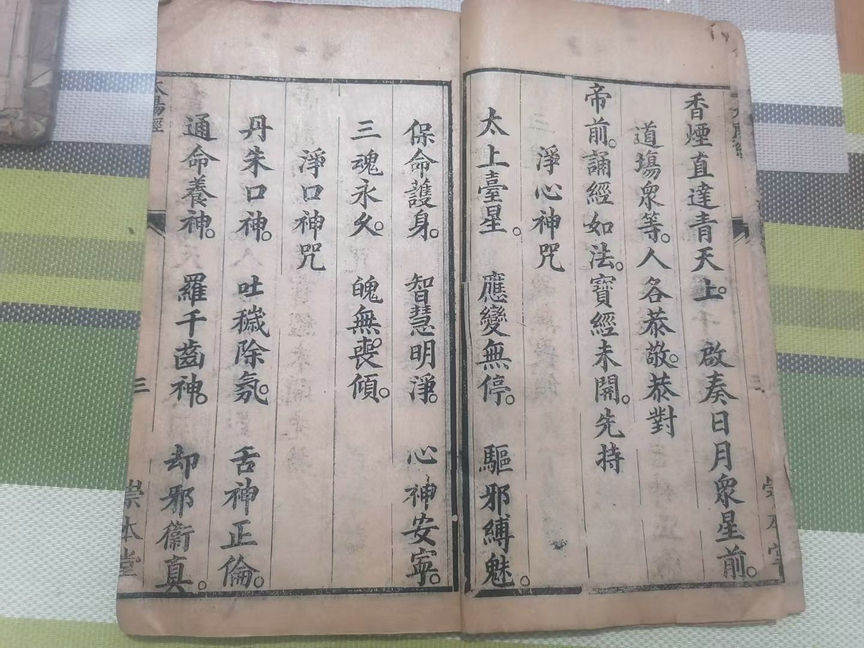 香煙直達青天上。啟奏日月衆星前。
道塲衆等。人各恭敬。恭對
帝前。誦經如法。寶經未開。先持
淨心神咒
太上臺星。應變無停。驅邪縛魅。
保命護身。智慧明淨。心神安寧。
三魂永久。魄無喪傾。
淨口神咒
丹朱口神。吐穢除氛。舌神正倫。
通命養神。羅千齒神。却邪衞真。
太陽經
三
崇本堂